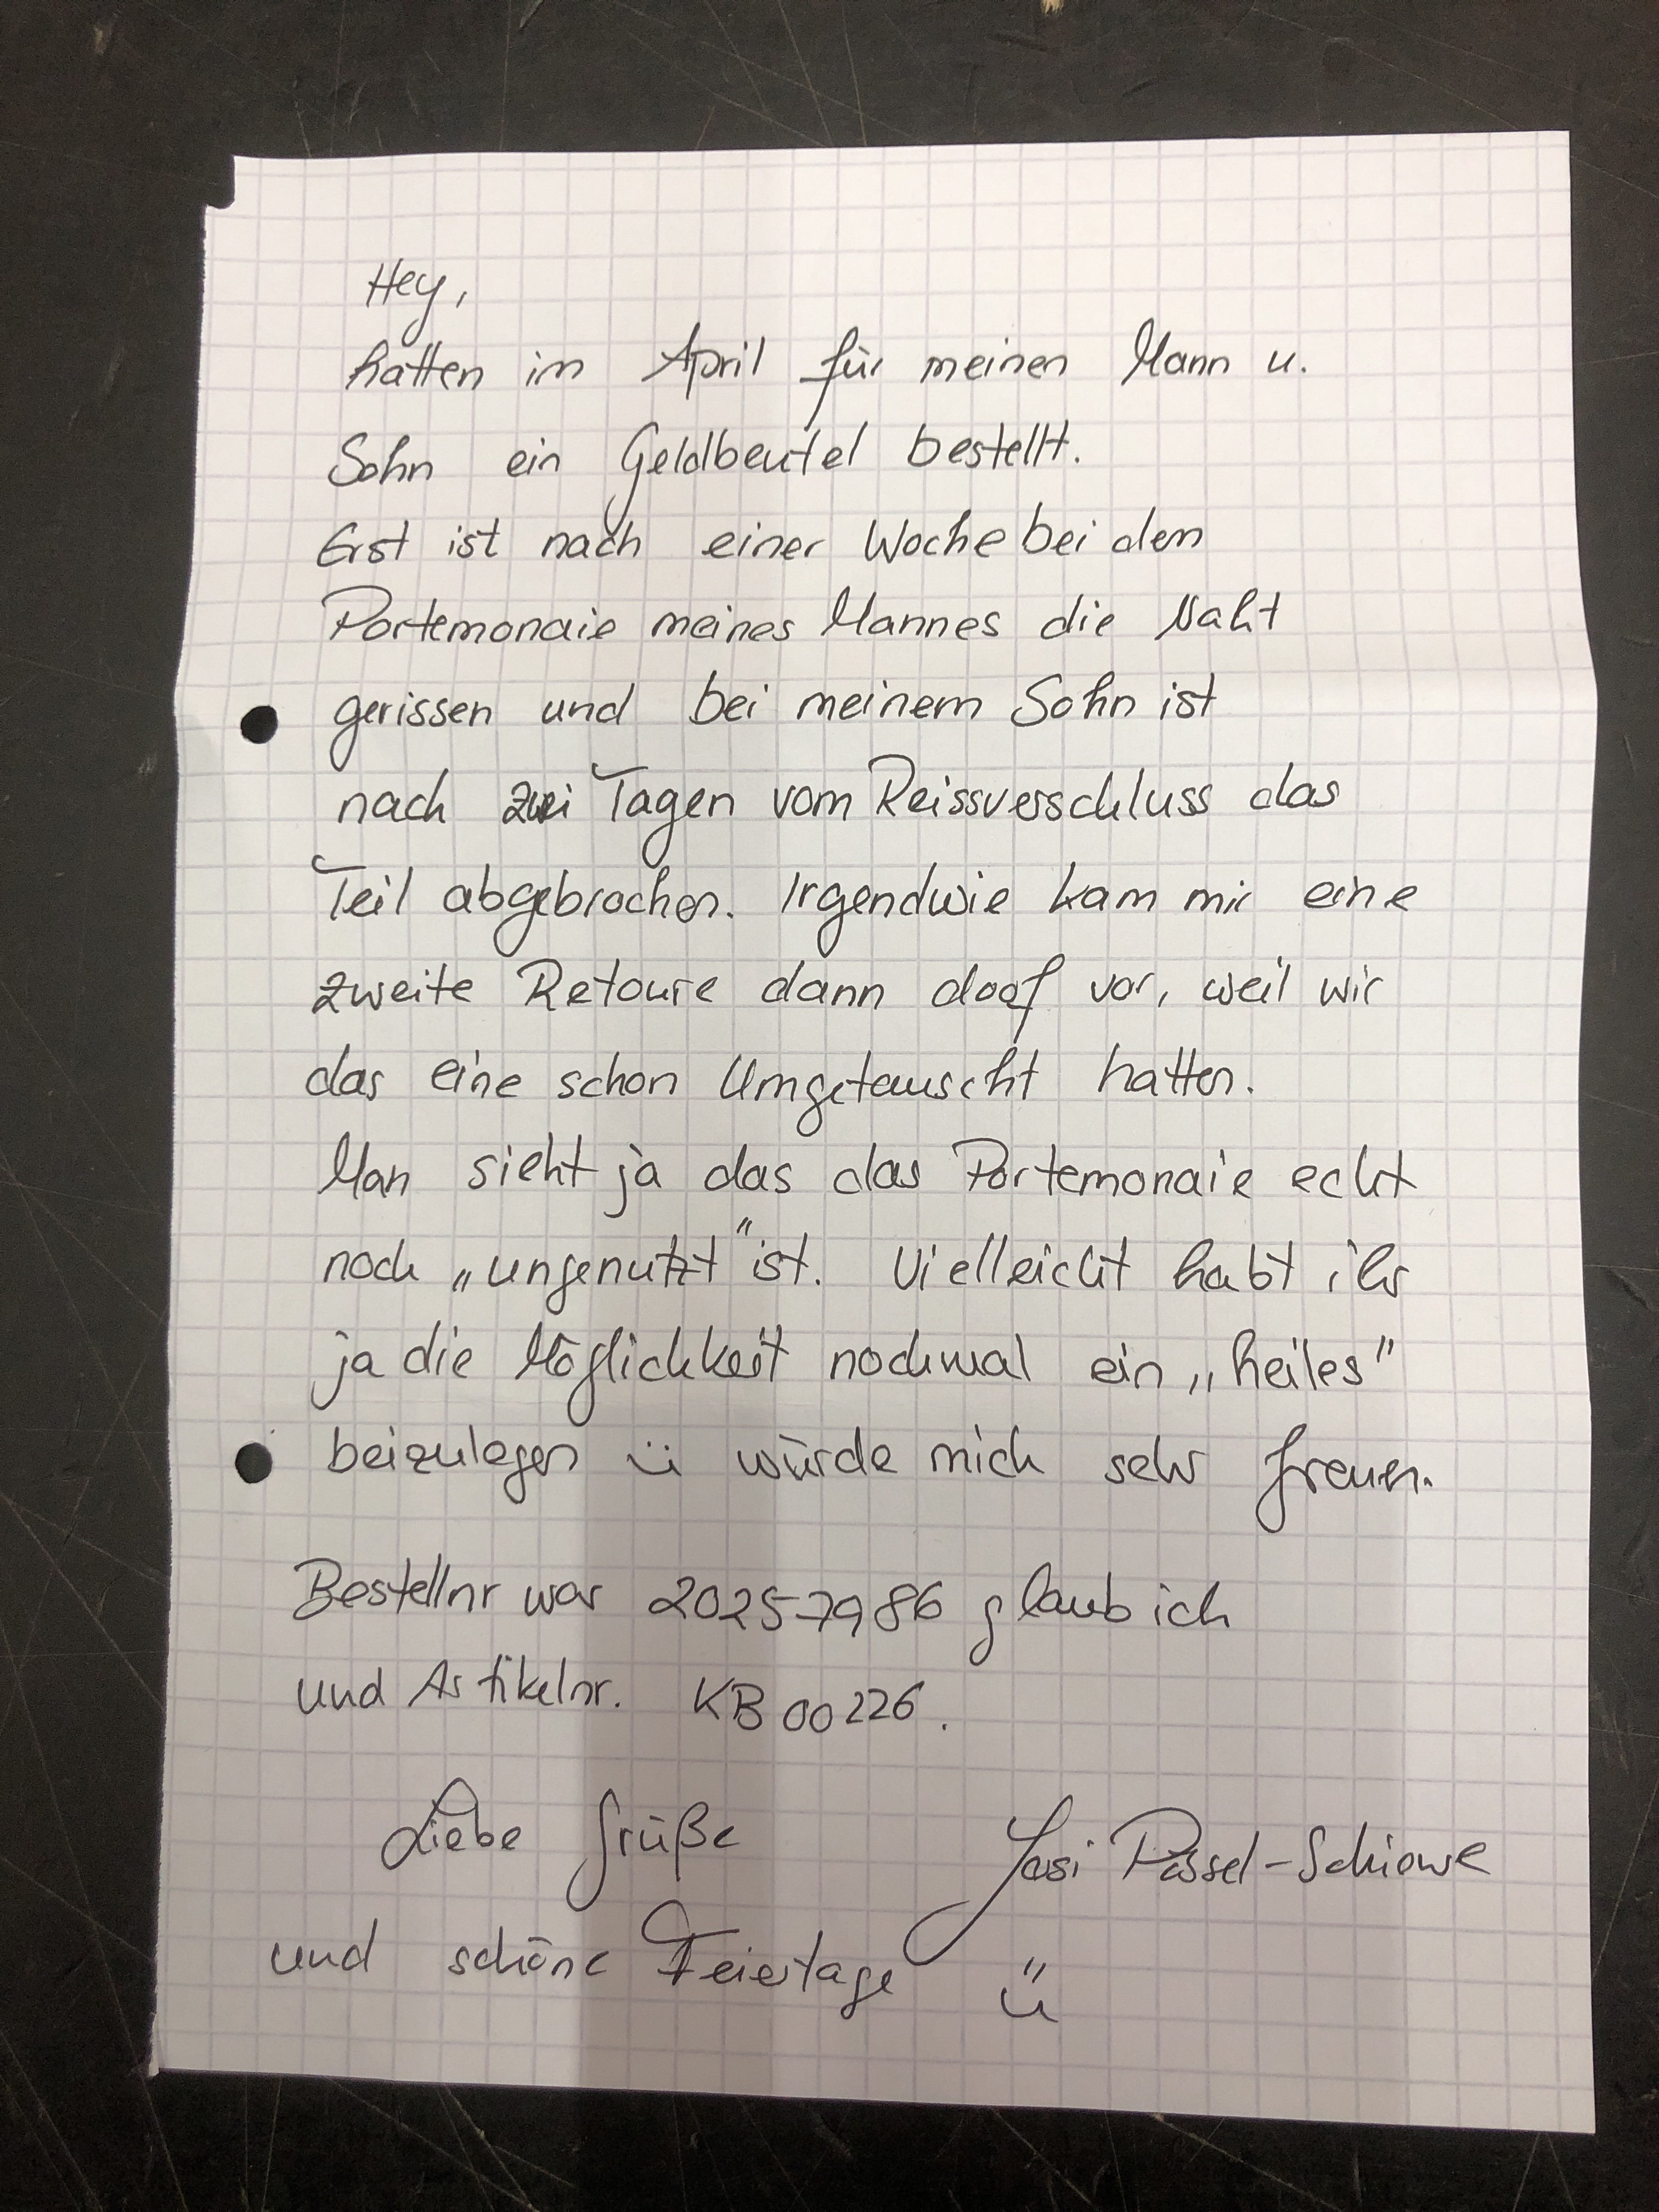 Hey,
hatten im April für meinen Mann u.
Sohn ein Geldbeutel bestellt.
Erst ist nach einer Woche bei dem
Portemonaie meines Mannes die Naht
gerissen und bei meinem Sohn ist
nach zwei Tagen vom Reissverschluss das
Teil abgebrochen. Irgendwie kam mir eine
zweite Retoure dann doof vor, weil wir
das eine schon Umgetauscht hatten.
Man sieht ja das das Portemonaie echt
noch „ungenutzt" ist. Vielleicht habt ihr
ja die Möglichkeit nochmal ein „heiles"
beizulegen ü würde mich sehr freuen.
Bestellnr war 20257986 glaub ich
und Artikelnr. KB00226.
Liebe Grüße
Possel-Schiewe
und schöne Feiertage ü